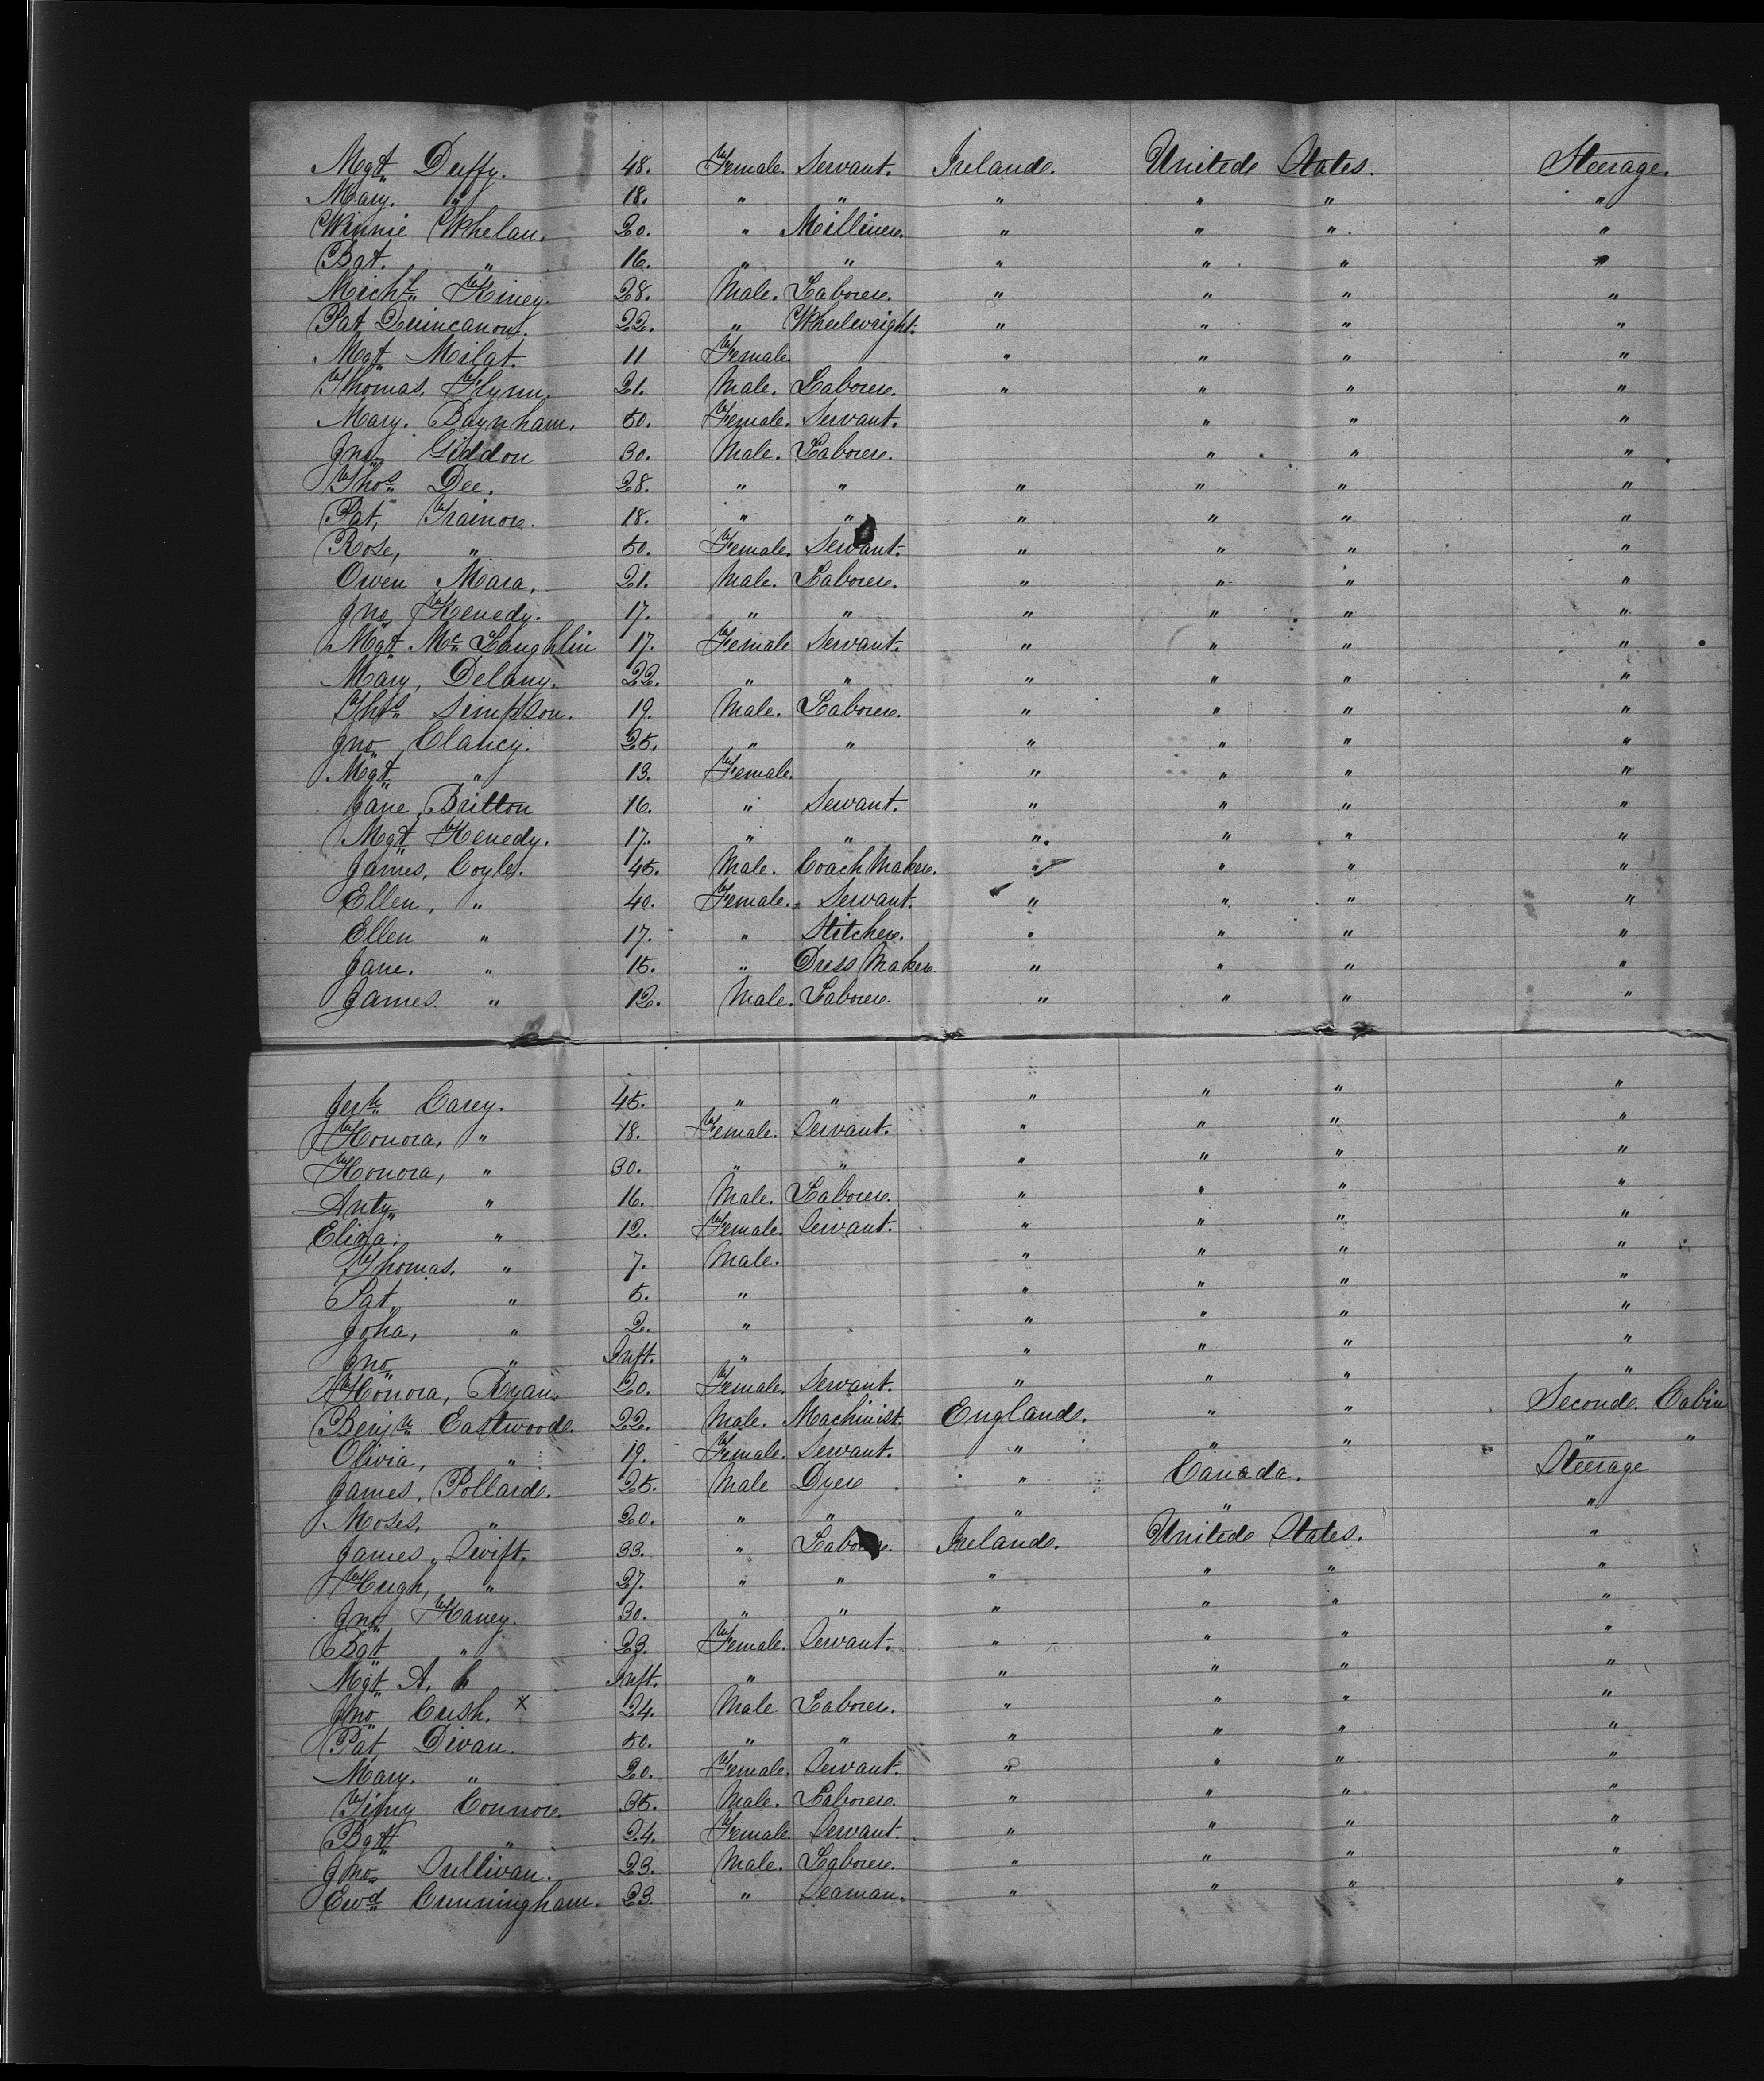 Mgt Duffy. 48. Female. Servant. Ireland. United States. Steerage.
Mary. " 18. " " " " " "
Winnie Whelan. 20. " Milliner. " " " "
Bgt. " 16. " " " " " "
Michl Kiney. 28. Male. Laborer. " " " "
Pat Quincanon. 22. " Wheelwright. " " " "
Mgt Milat. 11 Female. " " " "
Thomas. Flynn. 21. Male. Laborer. " " " "
Mary. Baynham. 50. Female. Servant. " " "
Jno Giddon 30. Male. Laborer. " " "
Thos Dee. 28. " " " " " "
Pat, Trainor. 18. " " " " " "
Rose, " 50. Female. Servant. " " " "
Owen Mara. 21. Male. Laborer. " " " "
Jno Kenedy. 17. " " " " " "
Mgt Mc Laughlin 17. Female Servant. " " " "
Mary, Delany. 22. " " " " " "
Thos Simpson. 19. Male. Laborer. " " " "
Jno Clancy. 25. " " " " " "
Mgt " 13. Female. " " " "
Jane Britton 16. " Servant. " " " "
Mgt Kenedy. 17. " " " " " "
James, Coyle. 45. Male. Coach Maker. " " " "
Ellen, " 40. Female. Servant. " " " "
Ellen " 17. " Stitcher. " " " "
Jane. " 15. " Dress Maker " " " "
James. " 12. Male. Laborer. " " " "
Jerh Carey. 45. " " " " " "
Honora, " 18. Female. Servant. " " " "
Honora, " 30. " " " " " "
Anty " 16. Male. Laborer. " " " "
Eliza. " 12. Female. Servant. " " " "
Thomas. " 7. Male. " " " "
Pat. " 5. " " " " "
Joha, " 2. " " " " "
Jno " Inft. " " " " "
Honora, Ryan. 20. Female. Servant. " " " "
Benjn Eastwood. 22. Male. Machinist. England. " " Second Cabin
Olivia, " 19. Female. Servant. " " " " "
James, Pollard. 25. Male Dyer " Canada. Steerage
Moses, " 20. " " " " "
James, Swift. 33. " Laborer. Ireland. United States. "
Hugh, " 27. " " " " " "
Jno Kaney. 30. " " " " " "
Bgt " 23. Female. Servant. " " " "
Mgt A. Inft. " " " " "
Jno Cush. x 24. Male Laborer. " " " "
Pat, Divan. 50. " " " " " "
Mary. " 20. Female. Servant. " " " "
Timy Connor. 35. Male. Laborer. " " " "
Bgt " 24. Female. Servant. " " " "
Jno Sullivan. 23. Male. Laborer. " " " "
Ewd Cunningham. 23. " Seaman. " " " "